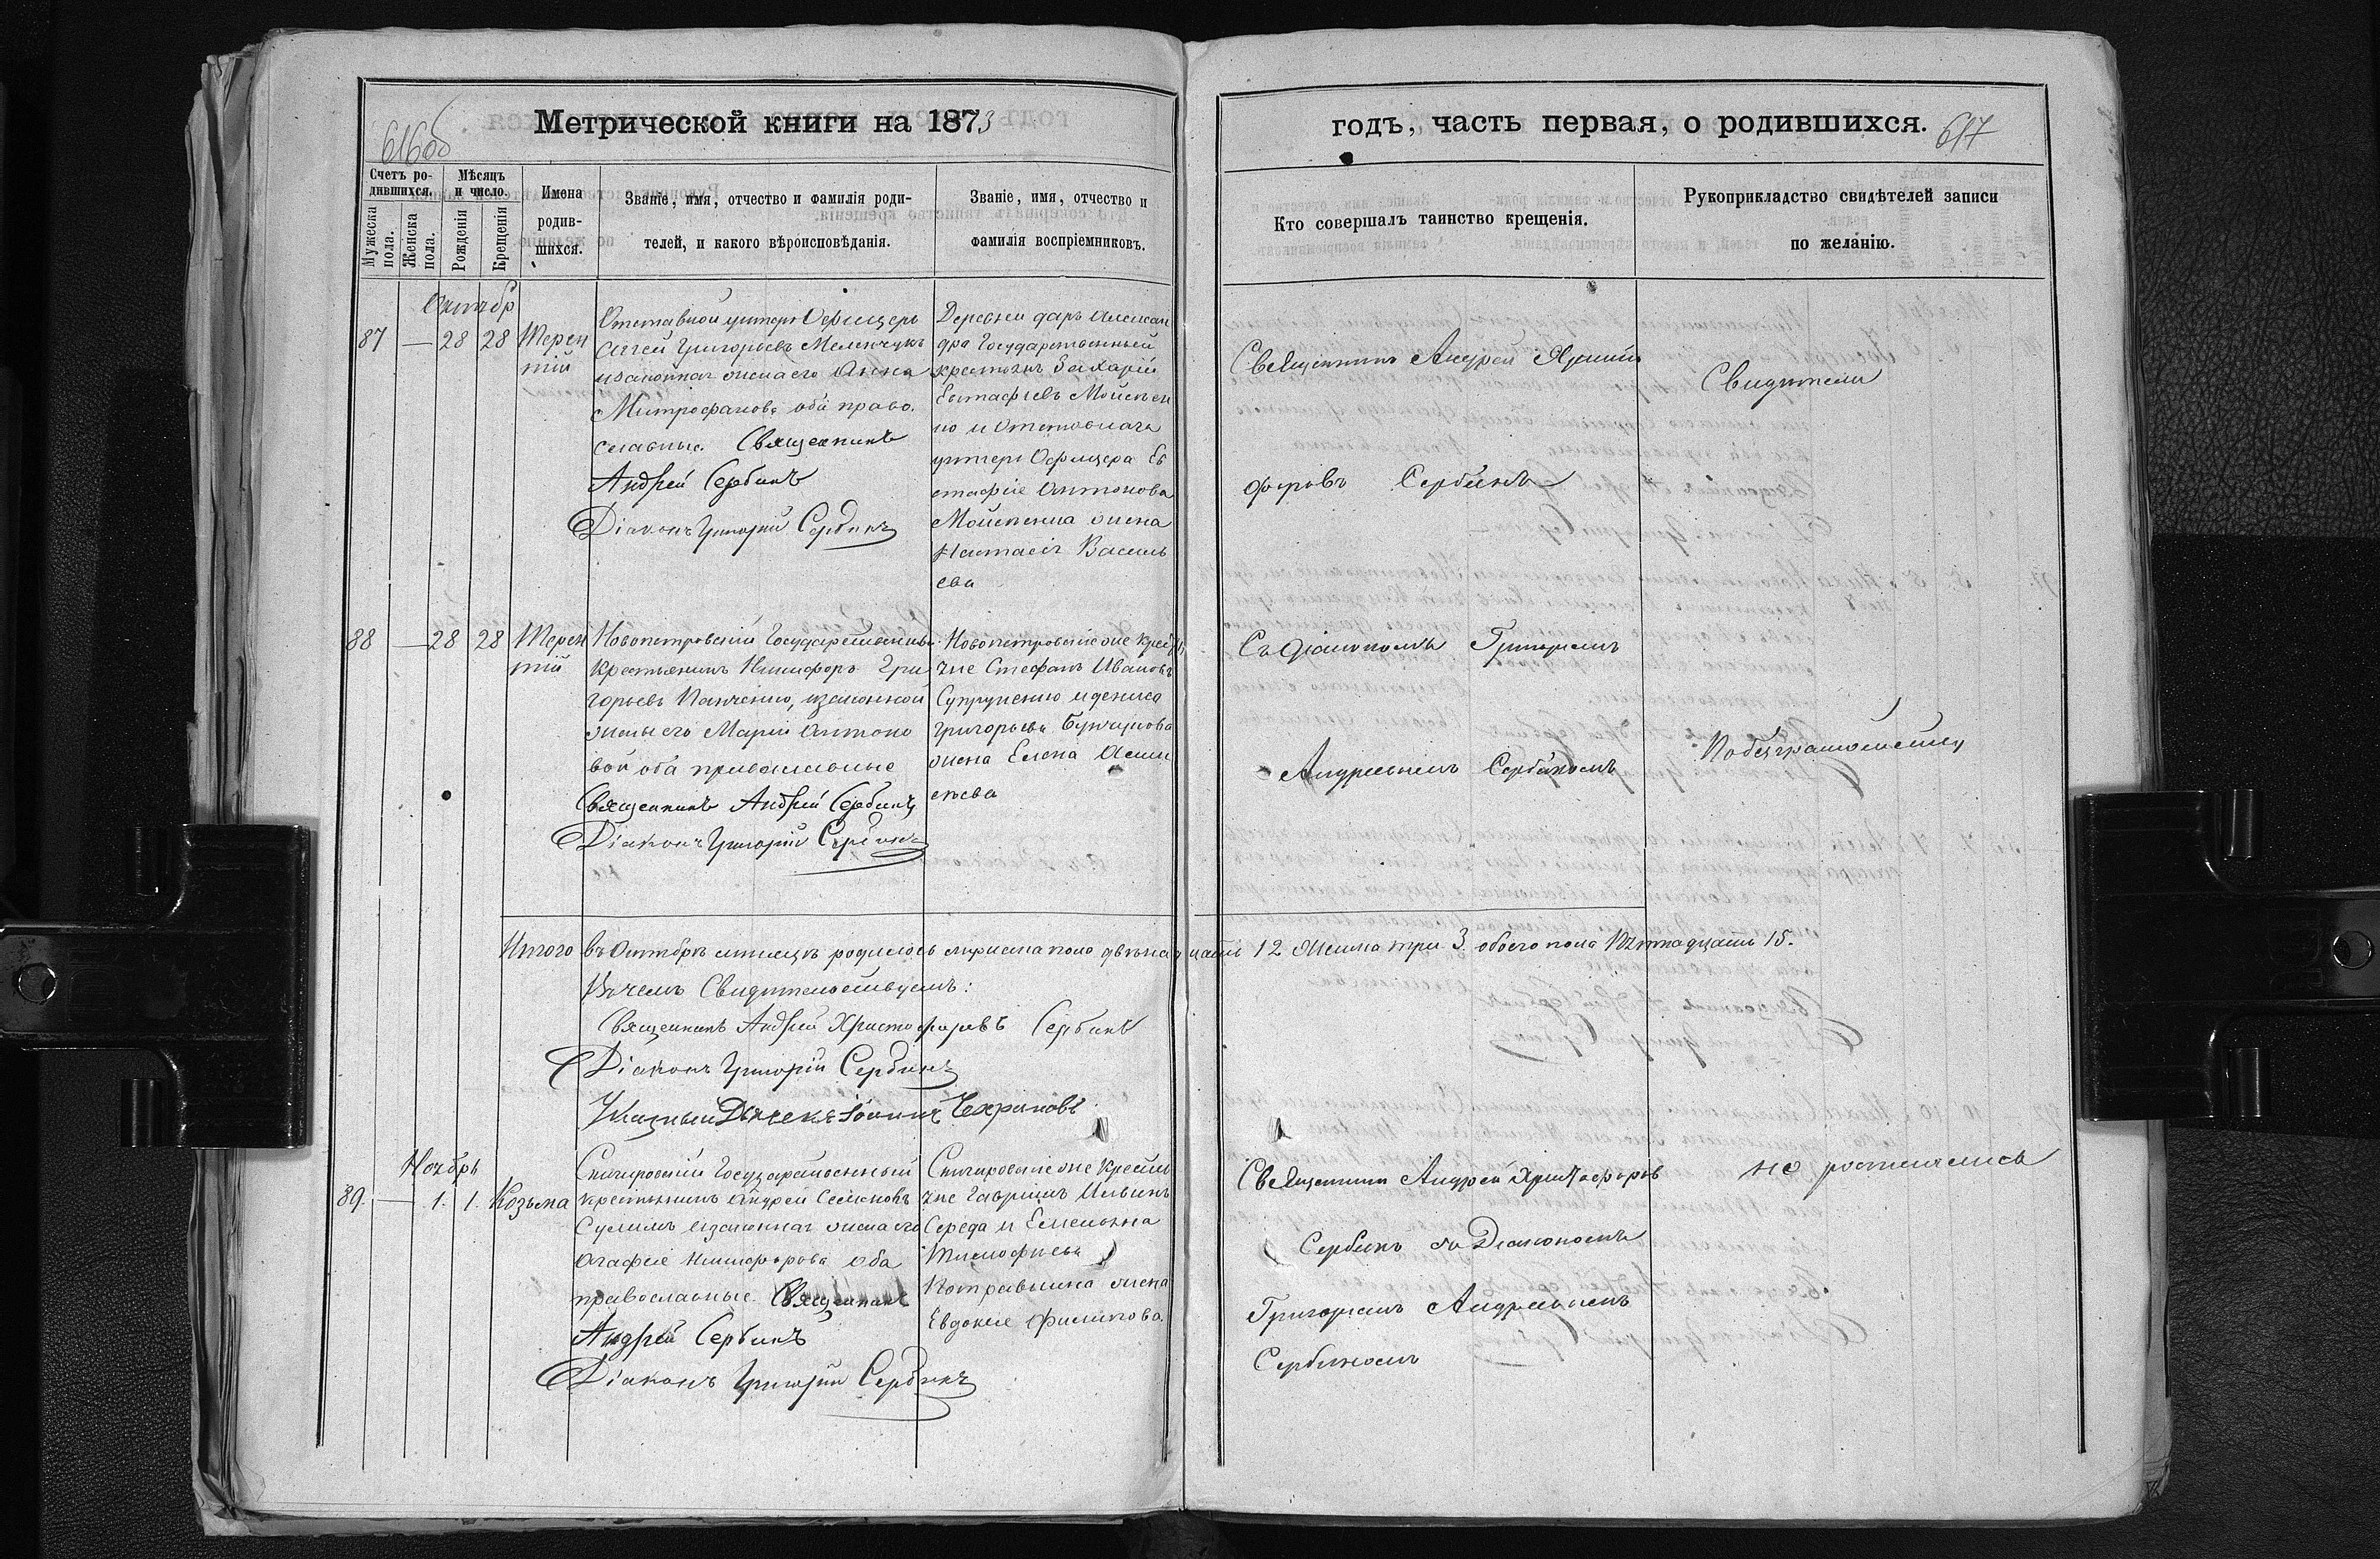 616об
Метрической книги на 1873
годъ, часть первая, о родившихся.
617
Счетъ родившихся.
Мужеска пола.
Женска пола.
Мѣсяцъ и число.
Рожденія
Крещенія
Имена родившихся.
Званіе, имя, отчество и фамилія родителей, и какого вѣроисповѣданія.
Званіе, имя, отчество и фамилія воспріемниковъ.
Кто совершалъ таинство крещенія.
Рукоприкладство свидѣтелей записи по желанію.
Октябр
87 — 28 28 Терен
тій
Отставной унтеръ Офицеръ
Григорьевъ
и законная жена его Анна
Митрофанова оба право
славные. Священникъ
Андрей Сербинъ
Діаконъ Григорій Сербинъ
Деревни Алексан
дра Государственный
Захарій
Евстафіевъ Мойсеен
ко и Отставнаго
унтеръ Офицера Ев
стафіе Антонова
Мойсеенка жена
Настасія Василь
ева
Священникъ Андрей
форовъ Сербинъ
Свидѣтели
88 — 28 28 Терен
тій
Новопетровскій Государственный
крестьянинъ Никифоръ Гри
горьевъ Панченко, и законной
жены его Марія Антоно
вой оба православные
Священникъ Андрей Сербинъ
Діаконъ Григорій Сербинъ
Новопетровскіе же крестья
не Стефанъ Ивановъ
Супруненко и Дениса
Григорьева
жена Елена Алек
сѣева
Съ Діакономъ Григоріемъ
Андреевымъ Сербиномъ
По безграмотству
Итого въ Октябрѣ мѣсяцѣ родилось мужеска пола двѣнадцать 12 женска три 3. обоего пола Пятнадцать 15.
Въ чемъ Свидѣтельствуемъ:
Священникъ Андрей Христофоровъ Сербинъ
Діаконъ Григорій Сербинъ
Указный Дьячекъ Іоаннъ
Ноябрь
89. — 1. 1. Козьма
Государственный
крестьянинъ Андрей Семеновъ
Сулимъ и законная жена его
Агафіе Никифорова оба
православные. Священникъ
Андрей Сербинъ
Діаконъ Григорій Сербинъ
же крестья
не Гавріилъ
Середа и Емельяна
Тимофѣева
жена
Евдокіе Филипова.
Священникъ Андрей Христофоровъ
Сербинъ съ Діакономъ
Григоріемъ Андреевымъ
Сербиномъ
не росписались